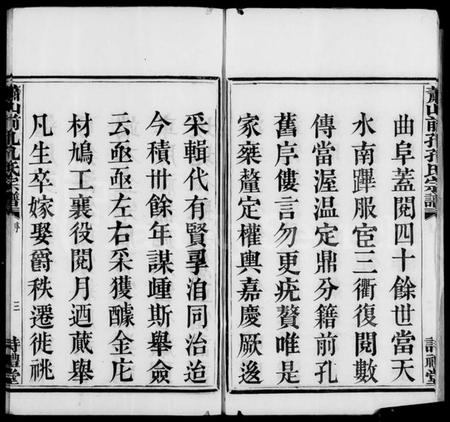 蕭山前孔孔氏宗譜
詩禮堂
曲阜蓋閱四十餘世當天
水南蹕服宦三衢復閱數
傳當渥温定鼎分籍前孔
舊序僂言勿更疣贅唯是
家椉釐定權輿嘉慶厥逡
采輯代有賢孠洎同治迨
今積丗餘年謀歱斯舉僉
云亟亟左右采獲醵金庀
材鳩工襄役閱月迺蕆舉
凡生卒嫁娶爵秩遷徙祧
蕭山前孔孔氏宗譜
序
三
詩禮堂